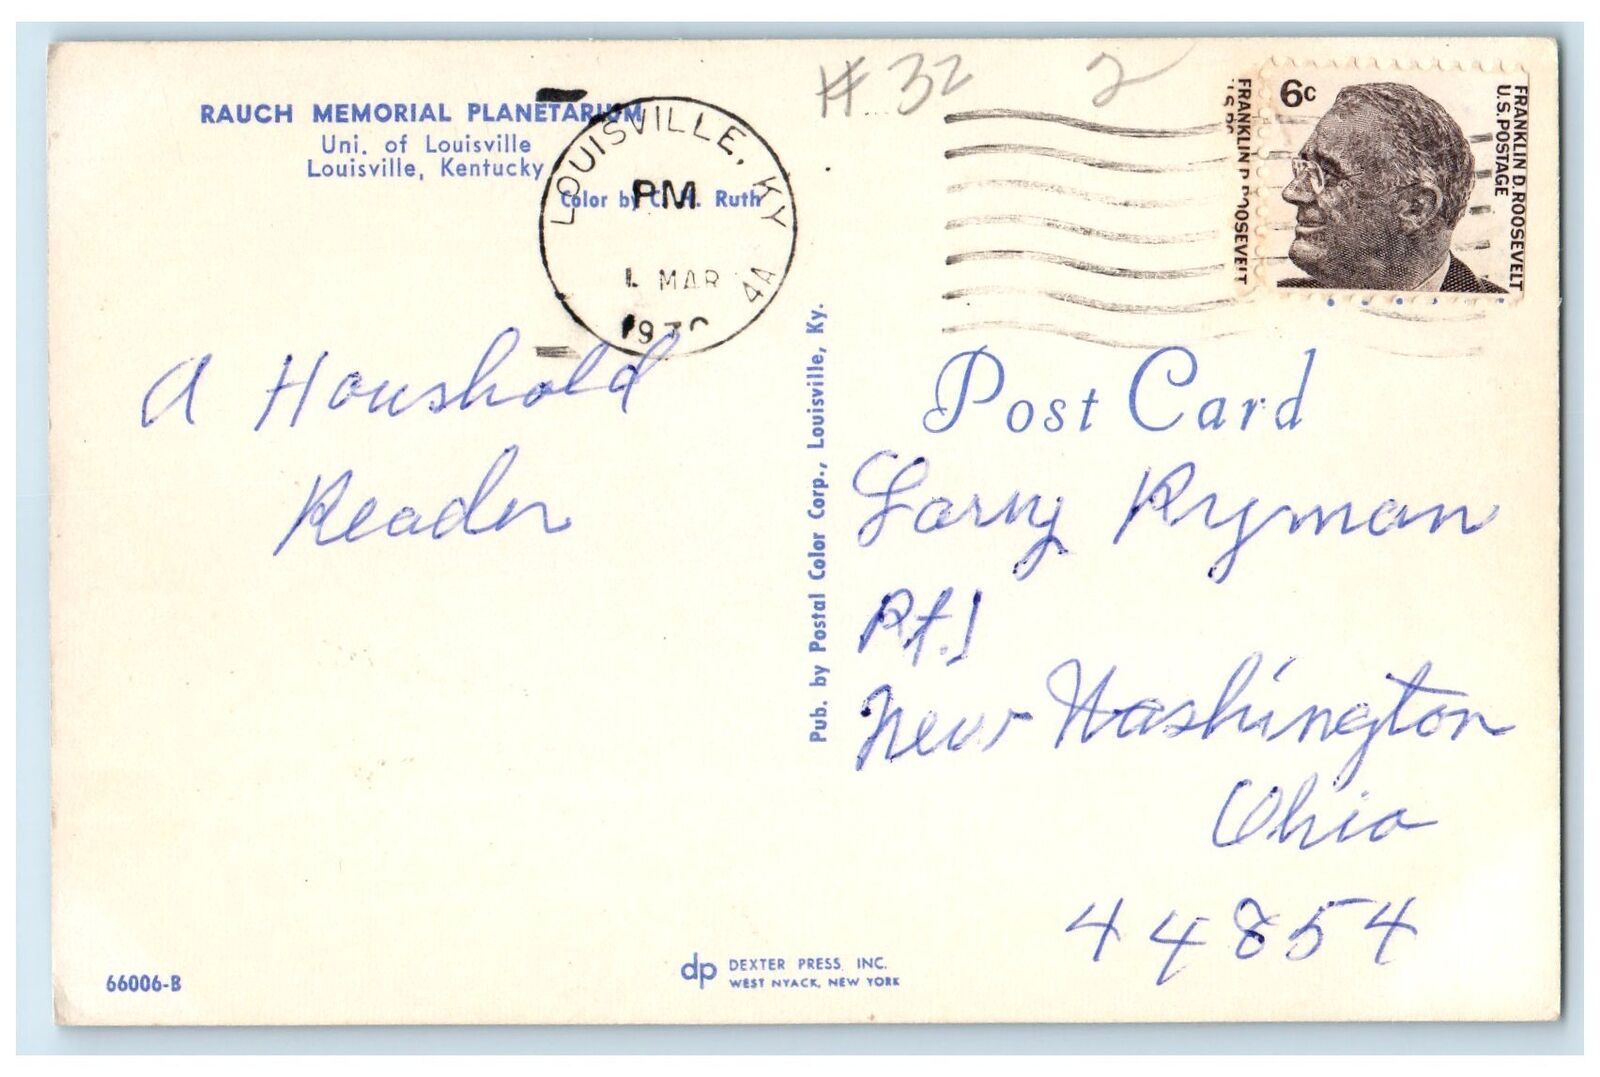 RAUCH MEMORIAL PLANETARIUM
Uni. of Louisville
Louisville, Kentucky
Color by C. H. Ruth
LOUISVILLE, KY
PM
1 MAR
4A
1970
# 32 2
6c
FRANKLIN D. ROOSEVELT
U.S. POSTAGE
FRANKLIN D. ROOSEVELT
A Houshold
Reader
Pub. by Postal Color Corp., Louisville, Ky.
Post Card
Larry Ryman
Rt. 1
New Washington
Ohio
44854
66006-B
dp DEXTER PRESS, INC.
WEST NYACK, NEW YORK